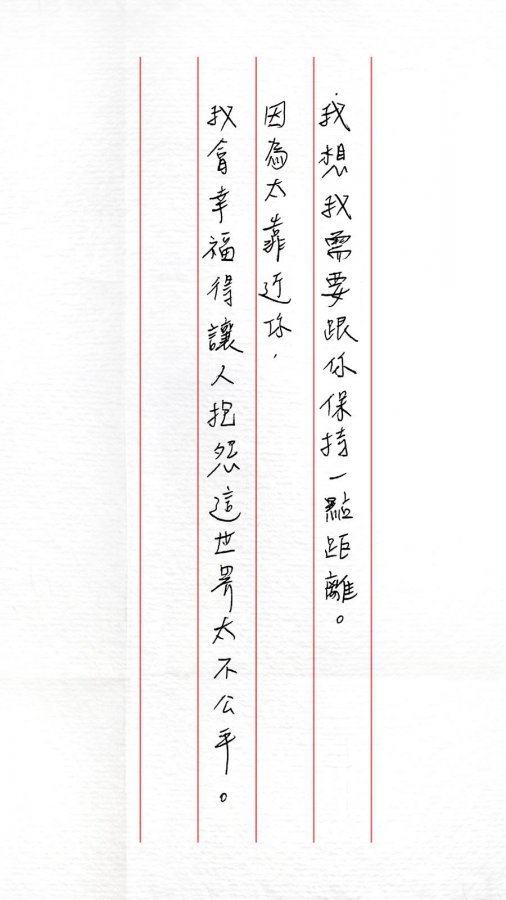 我想我需要跟你保持一點距離。
因為太靠近你，
我會幸福得讓人抱怨這世界太不公平。